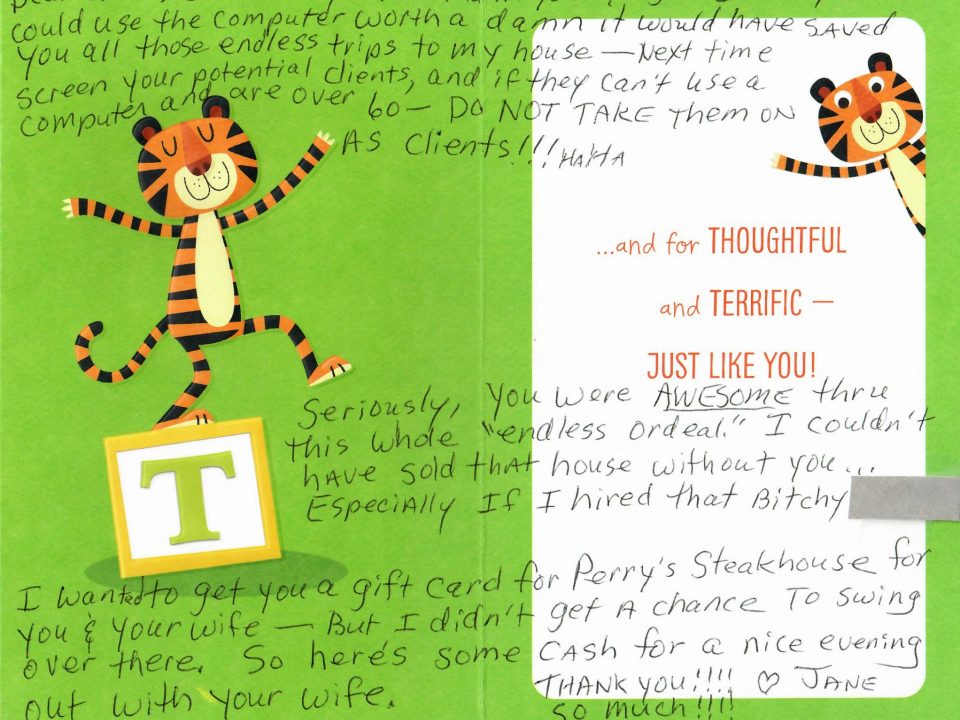 could use the computer worth a damn it would have saved
you all those endless trips to my house — Next time
screen your potential clients, and if they can't use a
computer and are over 60 — DO NOT TAKE them ON
AS Clients!!! HAHA
...and for THOUGHTFUL
and TERRIFIC —
JUST LIKE YOU!
Seriously, you were AWESOME thru
this whole "endless ordeal." I couldn't
have sold that house without you...
Especially If I hired that Bitchy
T
I wanted to get you a gift card for Perry's Steakhouse for
you & your wife — But I didn't get A chance To swing
over there. So here's some CASH for a nice evening
out with your wife.
THANK you!!!! ♡ JANE
so much!!!!